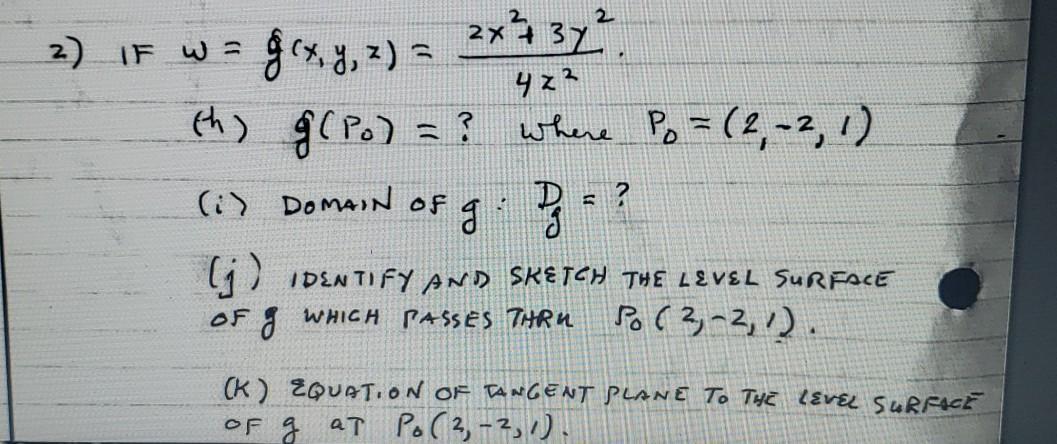 2) IF w = g(x, y, z) = (2x² + 3y²) / 4z² .
(h) g(P₀) = ? where P₀ = (2, -2, 1)
(i) DOMAIN OF g : D_g = ?
(j) IDENTIFY AND SKETCH THE LEVEL SURFACE
OF g WHICH PASSES THRU P₀ (2, -2, 1).
(K) EQUATION OF TANGENT PLANE TO THE LEVEL SURFACE
OF g at P₀ (2, -2, 1).